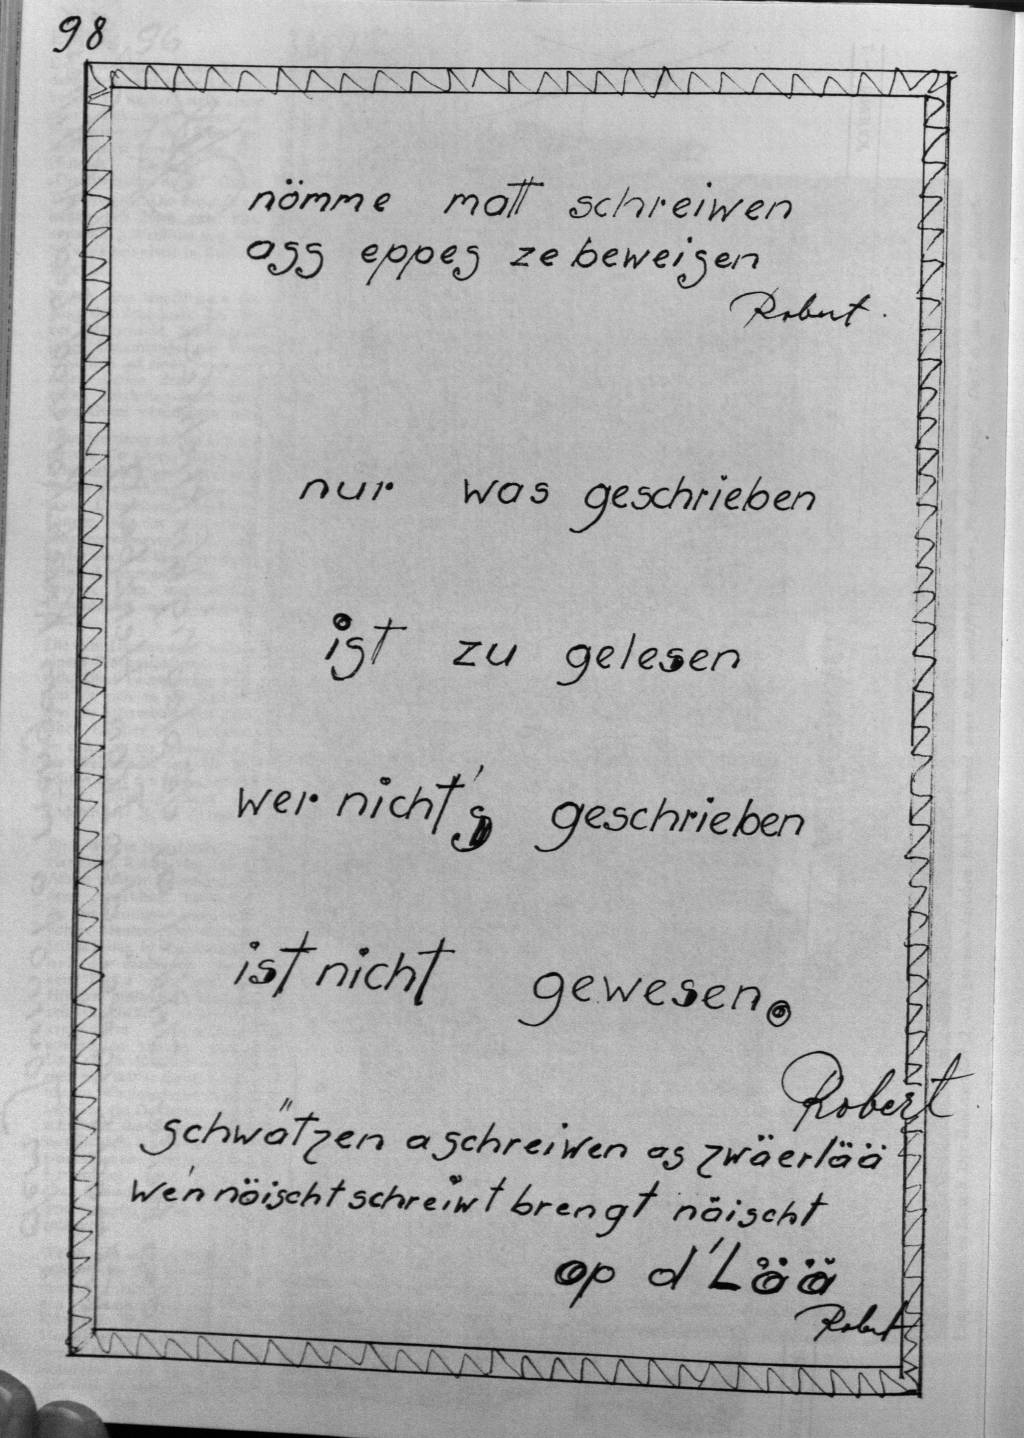 98
nömme matt schreiwen
ass eppes ze beweisen
Robert.
nur was geschrieben
ist zu gelesen
wer nicht's geschrieben
ist nicht gewesen.
Robert
schwätzen a schreiwen as zwäerlää
wé'n nöischt schreiwt brengt näischt
op d'Lää
Robert